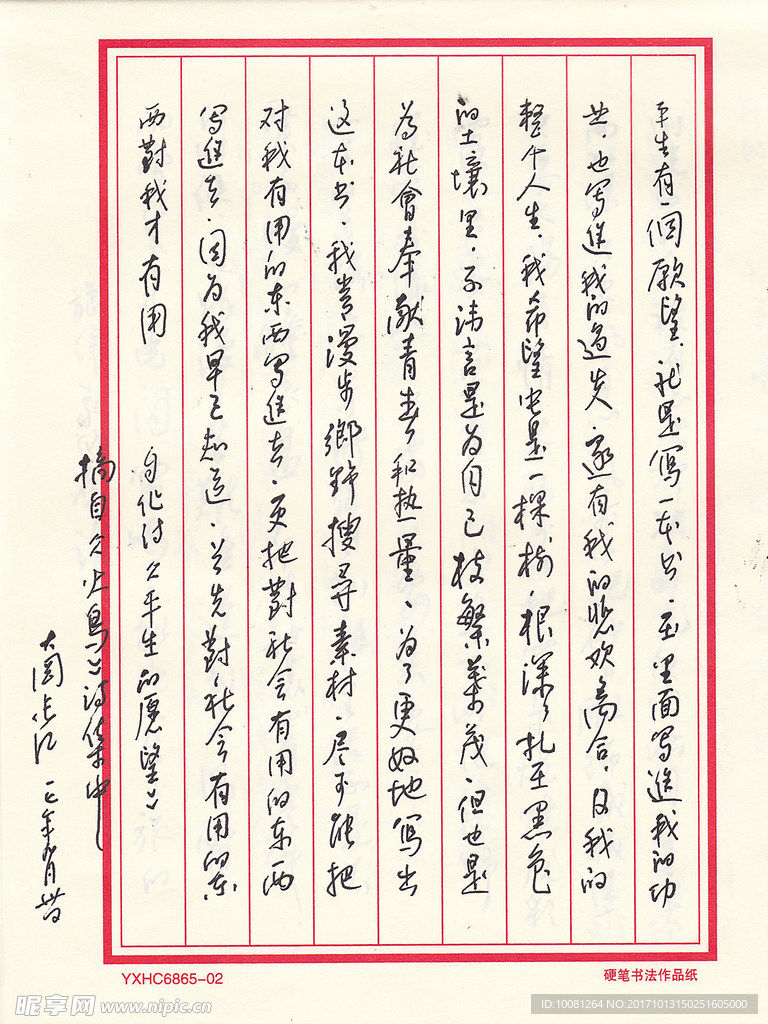 平生有一個願望,就是寫一本书,在里面写進我的功
业,也写進我的過失,還有我的悲欢离合,及我的
整个人生,我希望它是一棵树,根深深扎在黑色
的土壤里,不讳言是为自己枝繁葉茂,但也是
为社會奉献青春和热量,为了更好地寫出
这本书,我常漫步鄉野搜尋素材,尽可能把
对我有用的东西写進去,更把對社会有用的东西
写進去,因为我早已知道,首先對社会有用的东
西對我才有用
自作诗《平生的愿望》
摘自《火鳥》诗集中
一七年九月廿
YXHC6865-02
硬笔书法作品纸
昵享网 www.nipic.cn
ID:10081264 NO:20171013150251605000